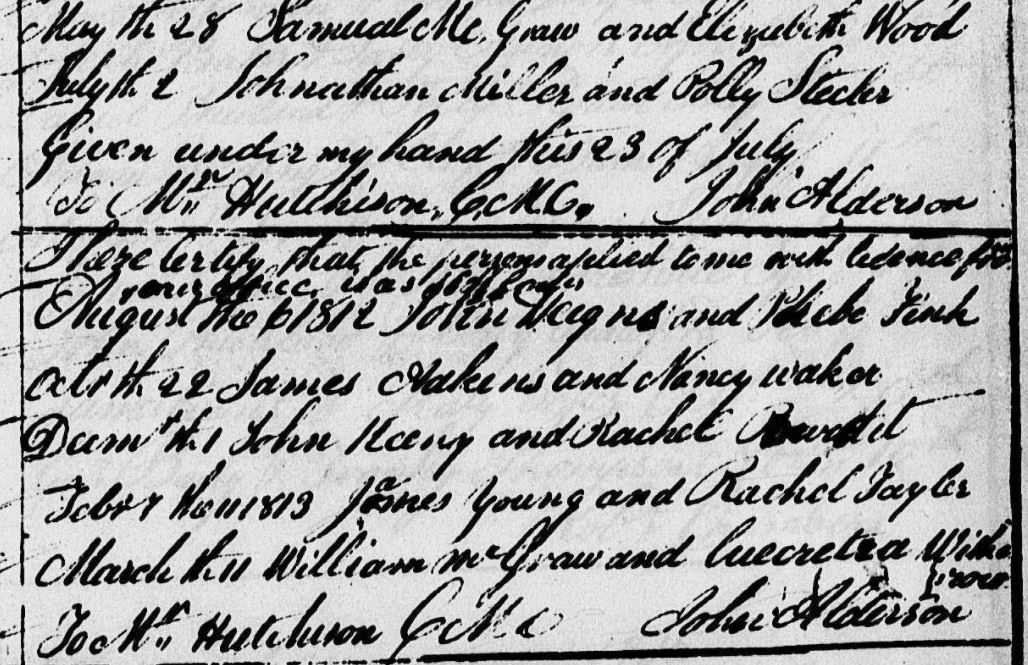 May th 28 Samual Mc, Graw and Elizabeth Wood
July th 2 Johnathan Miller and Polly Stecler
Given under my hand this 23 of July
To Mr Hutchison, C.M.C. John Alderson
These Certify that the persons aplied to me with lesence from
your office was
August the 6 1812 John Deegns and Phebe Fink
octr th 22 James Aakens and Nancy waker
Decmr th 1 John Keeny and Rachel
Febry the 11 1813 James Young and Rachel Tayler
March th 11 William mc Graw and Luecretea With
row
To Mr Hutchison C M C John Alderson